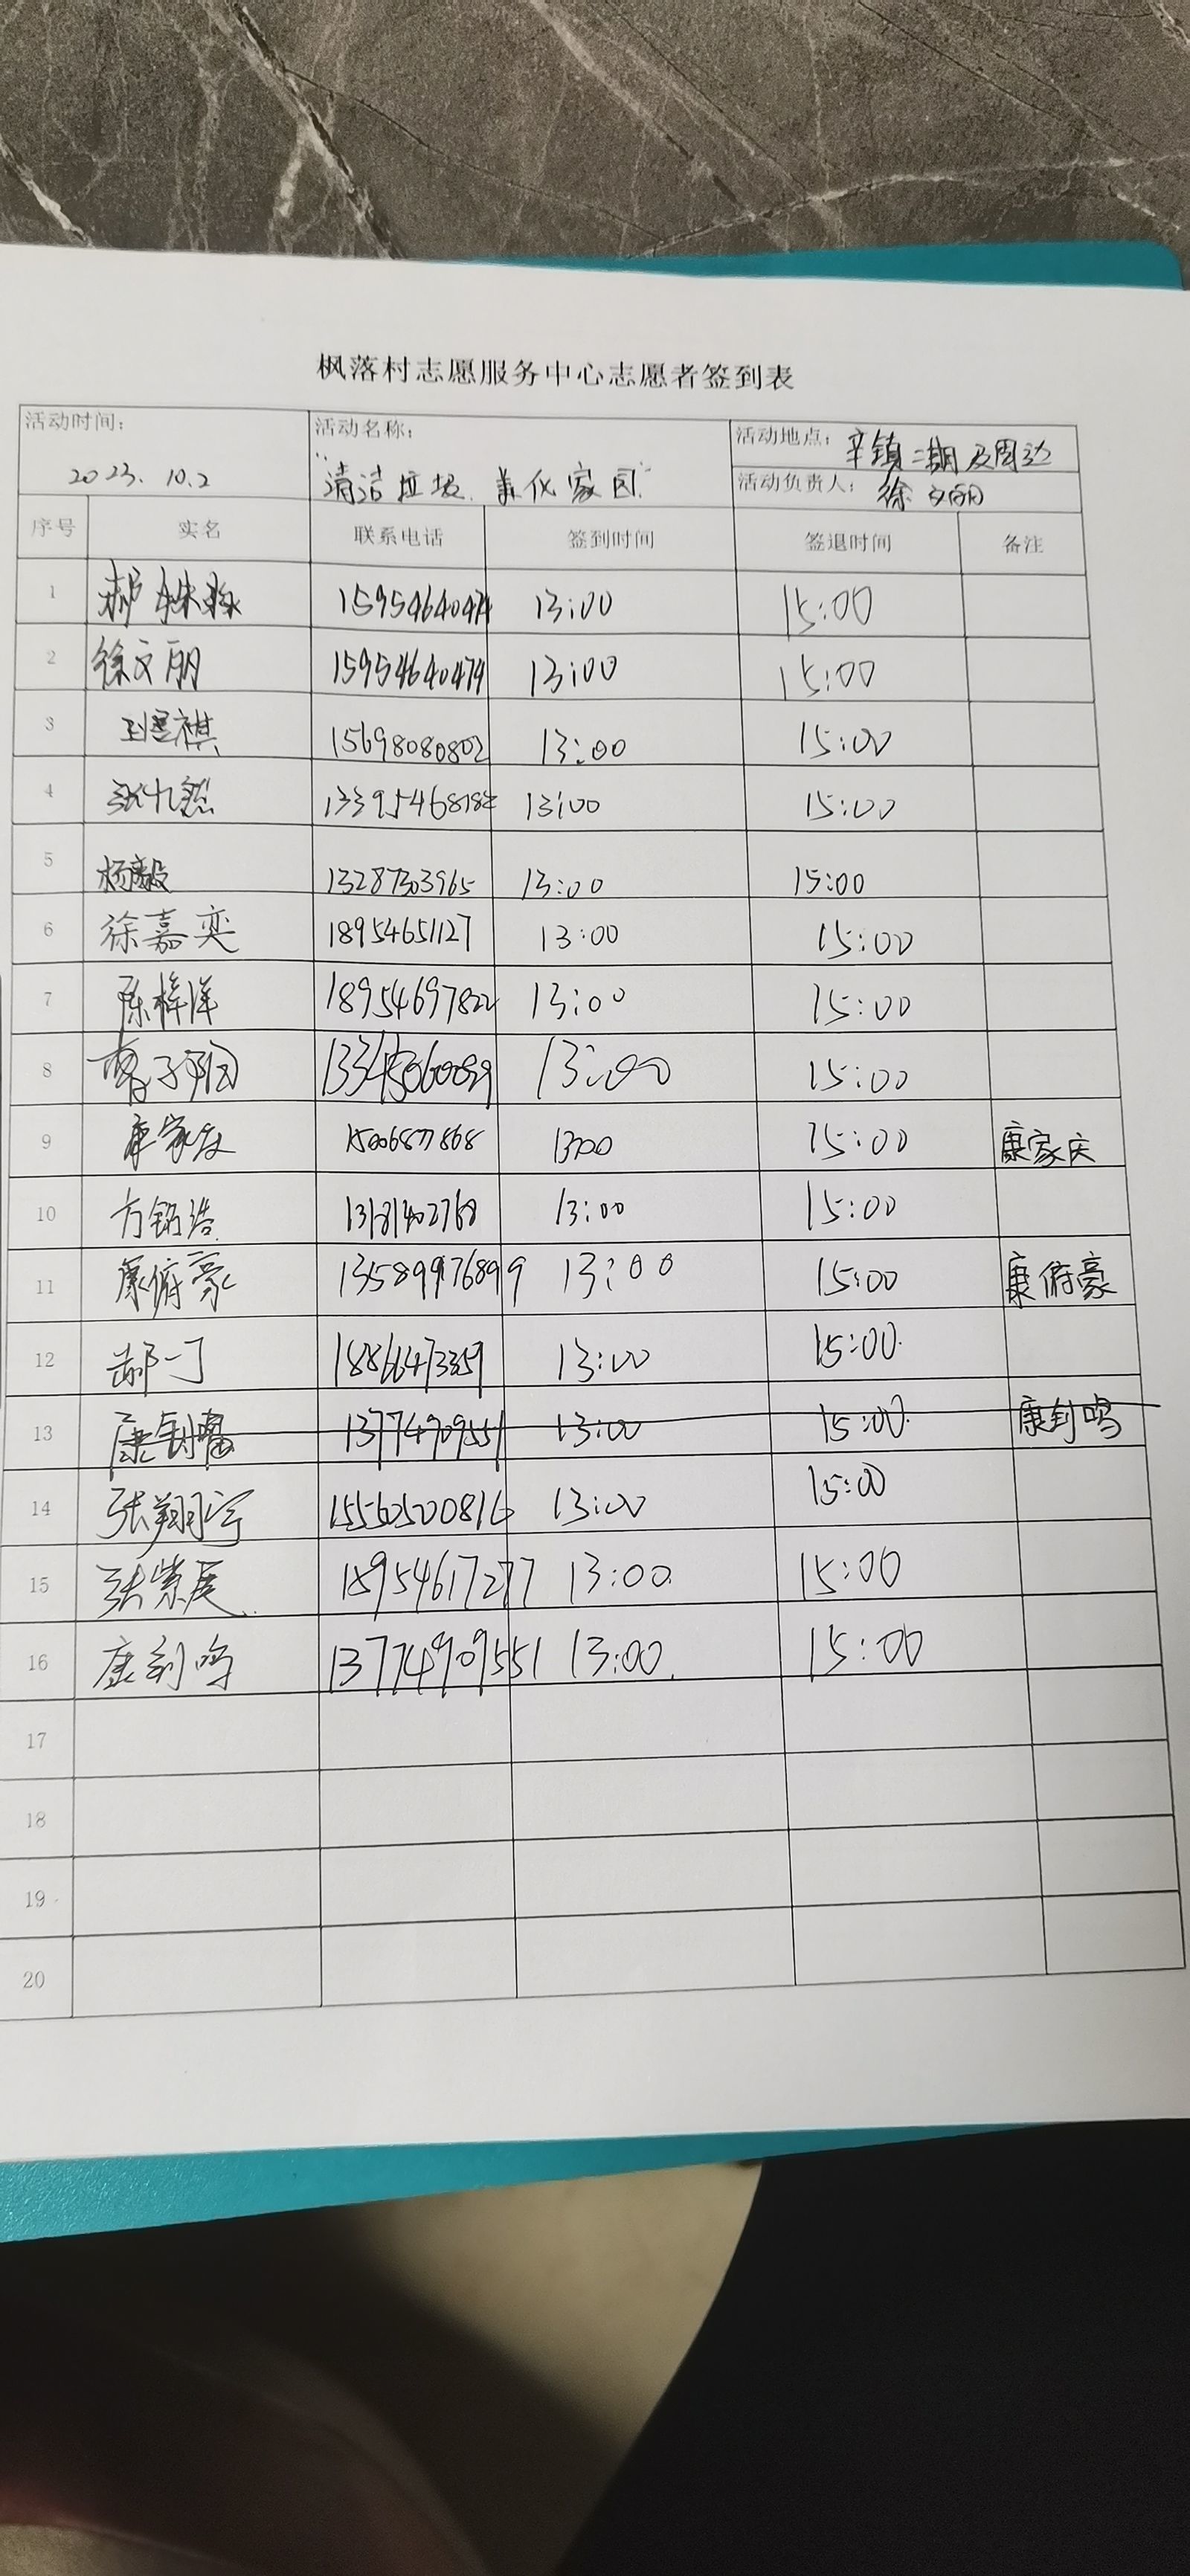 枫落村志愿服务中心志愿者签到表
活动时间： 活动名称： 活动地点：辛镇二期及周边
2023.10.2 "清洁垃圾、美化家园" 活动负责人：徐文丽
序号 实名 联系电话 签到时间 签退时间 备注
1 郝 15954640474 13:00 15:00
2 徐文丽 15954640474 13:00 15:00
3 祺 15698080802 13:00 15:00
4 13:00 15:00
5 杨毅 13287303965 13:00 15:00
6 徐嘉奕 18954651127 13:00 15:00
7 陈梓洋 18954697822 13:00 15:00
8 13:00 15:00
9 康家庆 15006877868 13:00 15:00 康家庆
10 方铭浩 13181402768 13:00 15:00
11 康俯豪 13:00 15:00 康俯豪
12 郝一丁 13:00 15:00
13 康钊 13774909551 13:00 15:00 康钊鸣
14 张翔宇 15562500816 13:00 15:00
15 张紫辰 18954617277 13:00 15:00
16 康钊鸣 13774909551 13:00 15:00
17
18
19
20